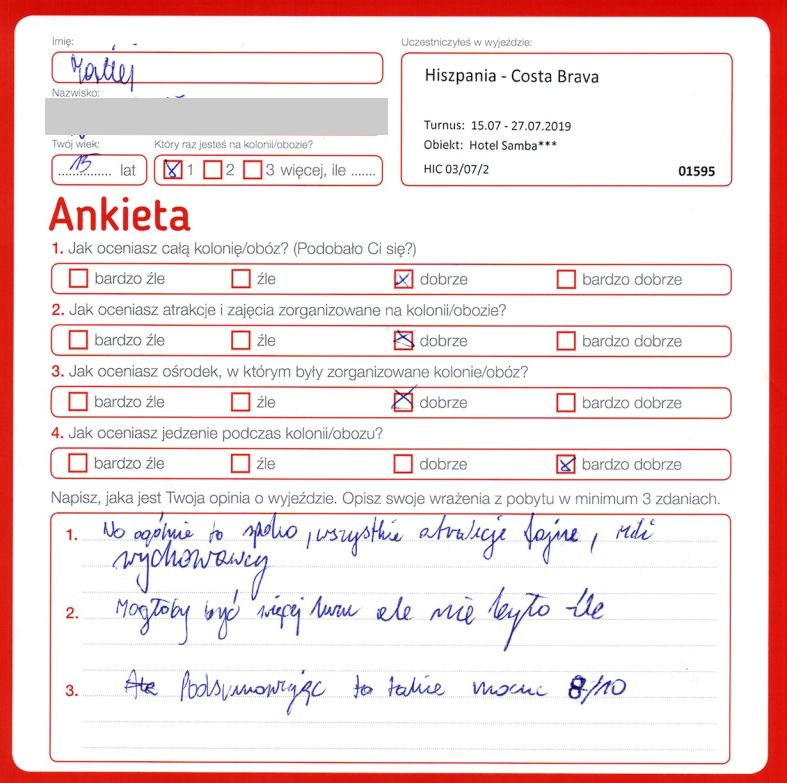 Imię:
Maciej
Nazwisko:
Twój wiek:
15 lat
Który raz jesteś na kolonii/obozie?
1 2 3 więcej, ile .......
Uczestniczyłeś w wyjeździe:
Hiszpania - Costa Brava
Turnus: 15.07 - 27.07.2019
Obiekt: Hotel Samba***
HIC 03/07/2 01595
Ankieta
1. Jak oceniasz całą kolonię/obóz? (Podobało Ci się?)
bardzo źle źle dobrze bardzo dobrze
2. Jak oceniasz atrakcje i zajęcia zorganizowane na kolonii/obozie?
bardzo źle źle dobrze bardzo dobrze
3. Jak oceniasz ośrodek, w którym były zorganizowane kolonie/obóz?
bardzo źle źle dobrze bardzo dobrze
4. Jak oceniasz jedzenie podczas kolonii/obozu?
bardzo źle źle dobrze bardzo dobrze
Napisz, jaka jest Twoja opinia o wyjeździe. Opisz swoje wrażenia z pobytu w minimum 3 zdaniach.
1. No ogólnie to spoko, wszystkie atrakcje fajne, mili
wychowawcy
2. Mogłoby być więcej ale nie było źle
3. Ale Podsumowując to takie mocne 8/10